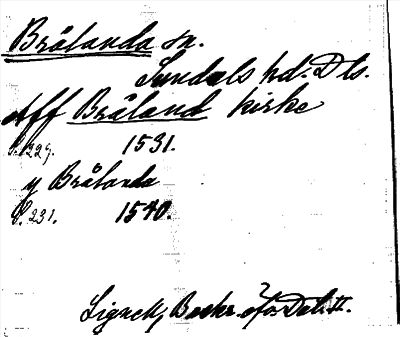 Brålanda sn.
Sundals hd. Dls.
Aff Bråland kirke
S. 229. 1531.
y Brålanda
S. 231. 1540.
Lignell, Beskr. ofv. Dal. II.